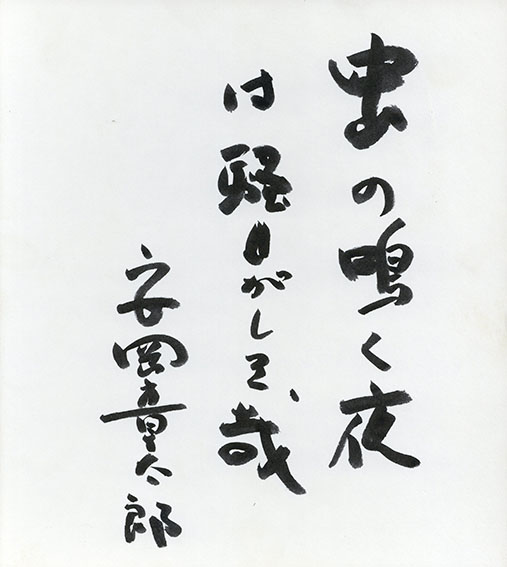 虫の鳴く夜
は騒がしき哉
安岡章太郎